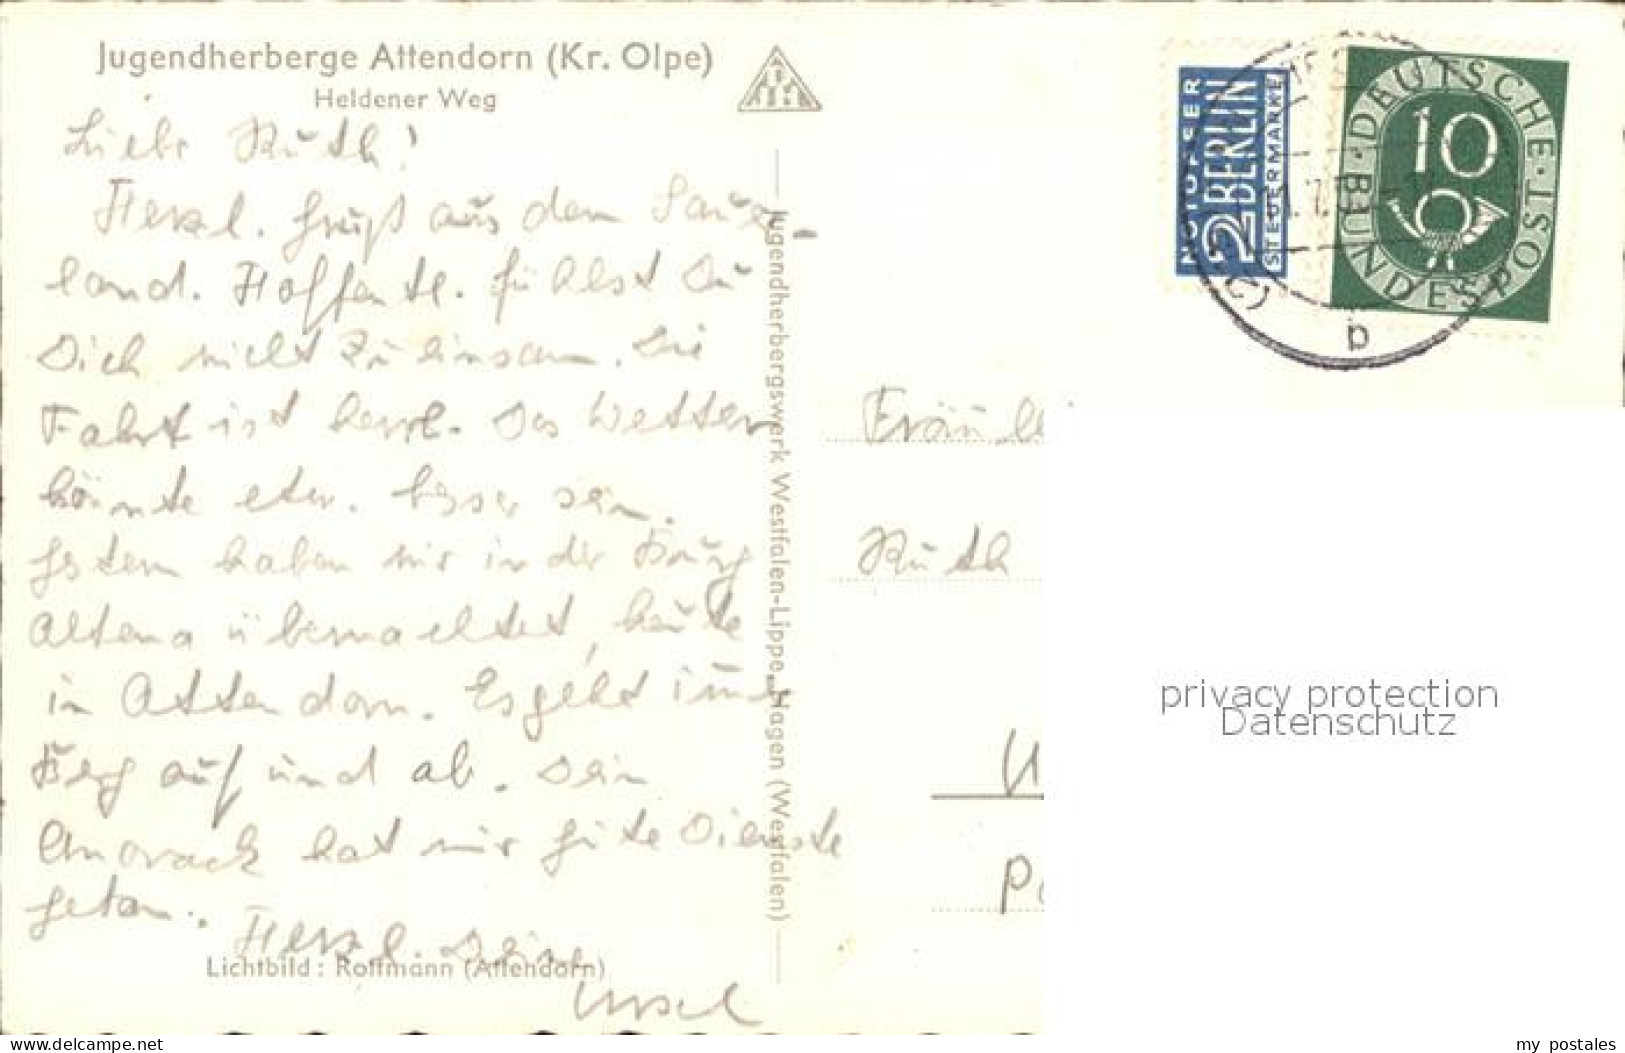 Jugendherberge Attendorn (Kr. Olpe)
Heldener Weg
Liebe Ruth!
Herzl. Gruß aus dem Sauer-
land. Hoffentl. fühlst Du
Dich nicht zu einsam. Die
Fahrt ist herrl. Das Wetter
könnte etw. besser sein.
Gestern haben wir in der Burg
Altena übernachtet, heute
in Attendorn. Es geht immer
Berg auf und ab. Dein
Anorack hat mir gute Dienste
getan.
Herzl. Deine
Ursel
Lichtbild: Rottmann (Attendorn)
Jugendherbergswerk Westfalen-Lippe, Hagen (Westfalen)
NOTOPFER
2 BERLIN
STEUERMARKE
DEUTSCHE BUNDESPOST
10
b
Fräule
Ruth
privacy protection
Datenschutz
www.delcampe.net
my_postales